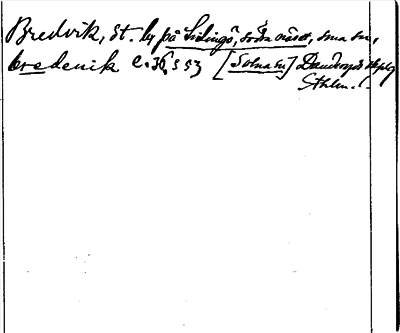 Bredvik, st. by på Lidingö, södra sidan, sma sn,
bredeuik C.36, s 53 [Solna sn] Danderyds skplg
Sthlm. l.